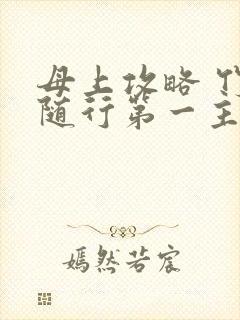 母上攻略
随行第一主
嫣然若宸